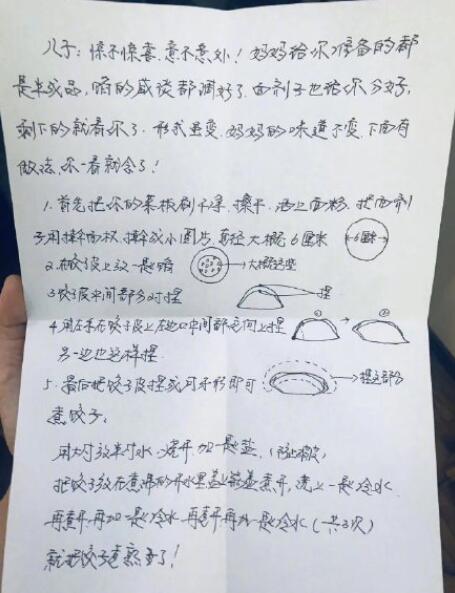 儿子：惊不惊喜、意不意外！妈妈给你准备的都
是半成品，馅的咸谈都调好了、面剂子也给你分好，
剩下的就看你了、形式虽变、妈妈的味道不变、下面有
做法、你一看就会了！
1、首先把你的菜板刷干净、擦干、洒上面粉、把面剂
子用擀面杖、擀成小圆片、直径大概6厘米 6厘米
2、在饺子皮上放一些馅 大概这些
3、饺子皮中间部分对捏 捏
4、用左手在饺子皮上左边口中间部 向上捏 ① ②
另一边也这样捏
5、最后把饺子皮捏成月牙形即可 捏这部分
煮饺子，
用大 放半 水、烧开、加一些盐、
把饺子放在煮 的开水里盖上锅盖煮开，浇上一些冷水
再煮开再加一些冷水 再煮开再加一些冷水（一共3次）
就把饺子煮熟了！